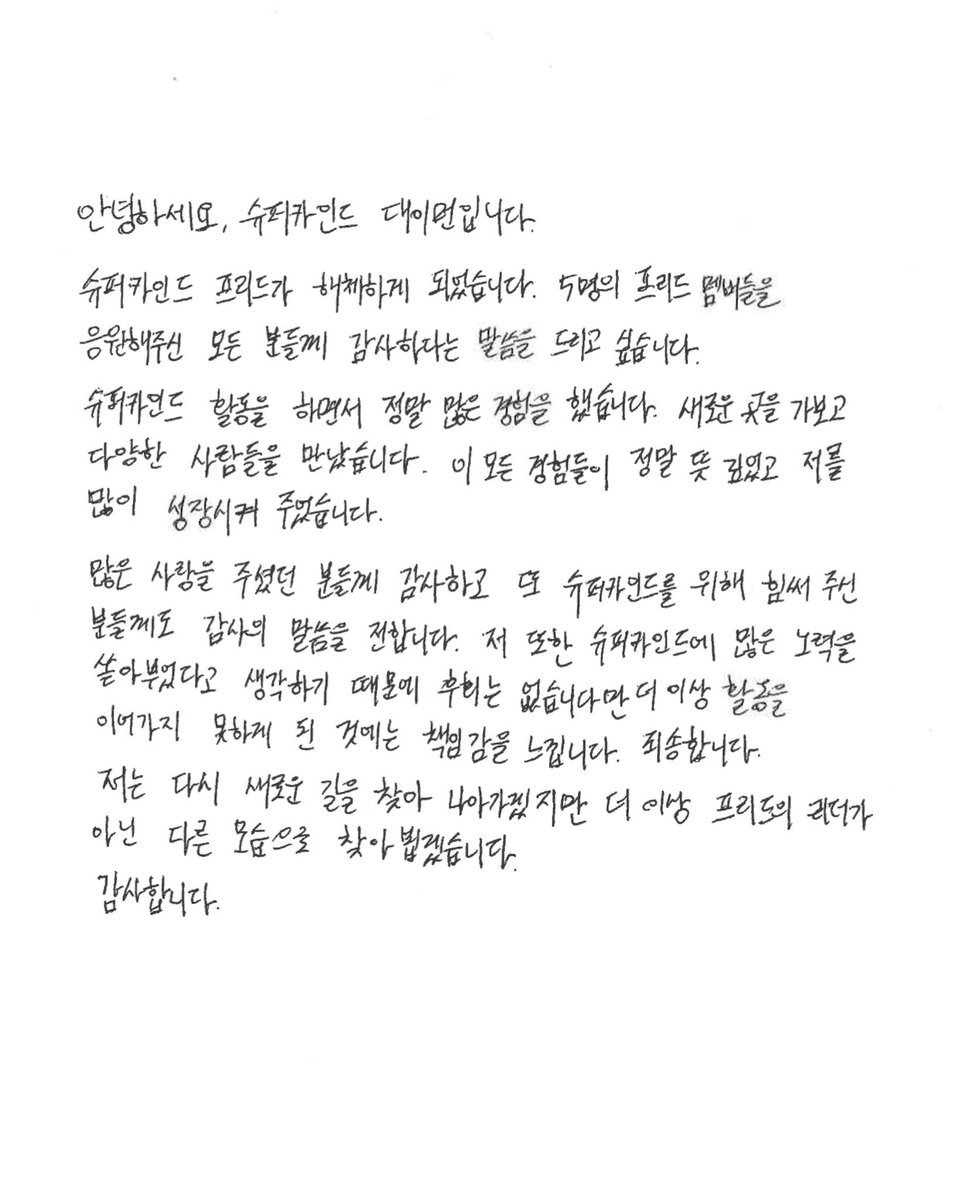 안녕하세요, 슈퍼카인드 대이먼입니다.
슈퍼카인드 프리드가 해체하게 되었습니다. 5명의 프리드 멤버들을
응원해주신 모든 분들께 감사하다는 말씀을 드리고 싶습니다.
슈퍼카인드 활동을 하면서 정말 많은 경험을 했습니다. 새로운 곳을 가보고
다양한 사람들을 만났습니다. 이 모든 경험들이 정말 뜻 깊었고 저를
많이 성장시켜 주었습니다.
많은 사랑을 주셨던 분들께 감사하고 또 슈퍼카인드를 위해 힘써 주신
분들께도 감사의 말씀을 전합니다. 저 또한 슈퍼카인드에 많은 노력을
쏟아부었다고 생각하기 때문에 후회는 없습니다만 더 이상 활동을
이어가지 못하게 된 것에는 책임감을 느낍니다. 죄송합니다.
저는 다시 새로운 길을 찾아 나아가겠지만 더 이상 프리드의 리더가
아닌 다른 모습으로 찾아뵙겠습니다.
감사합니다.